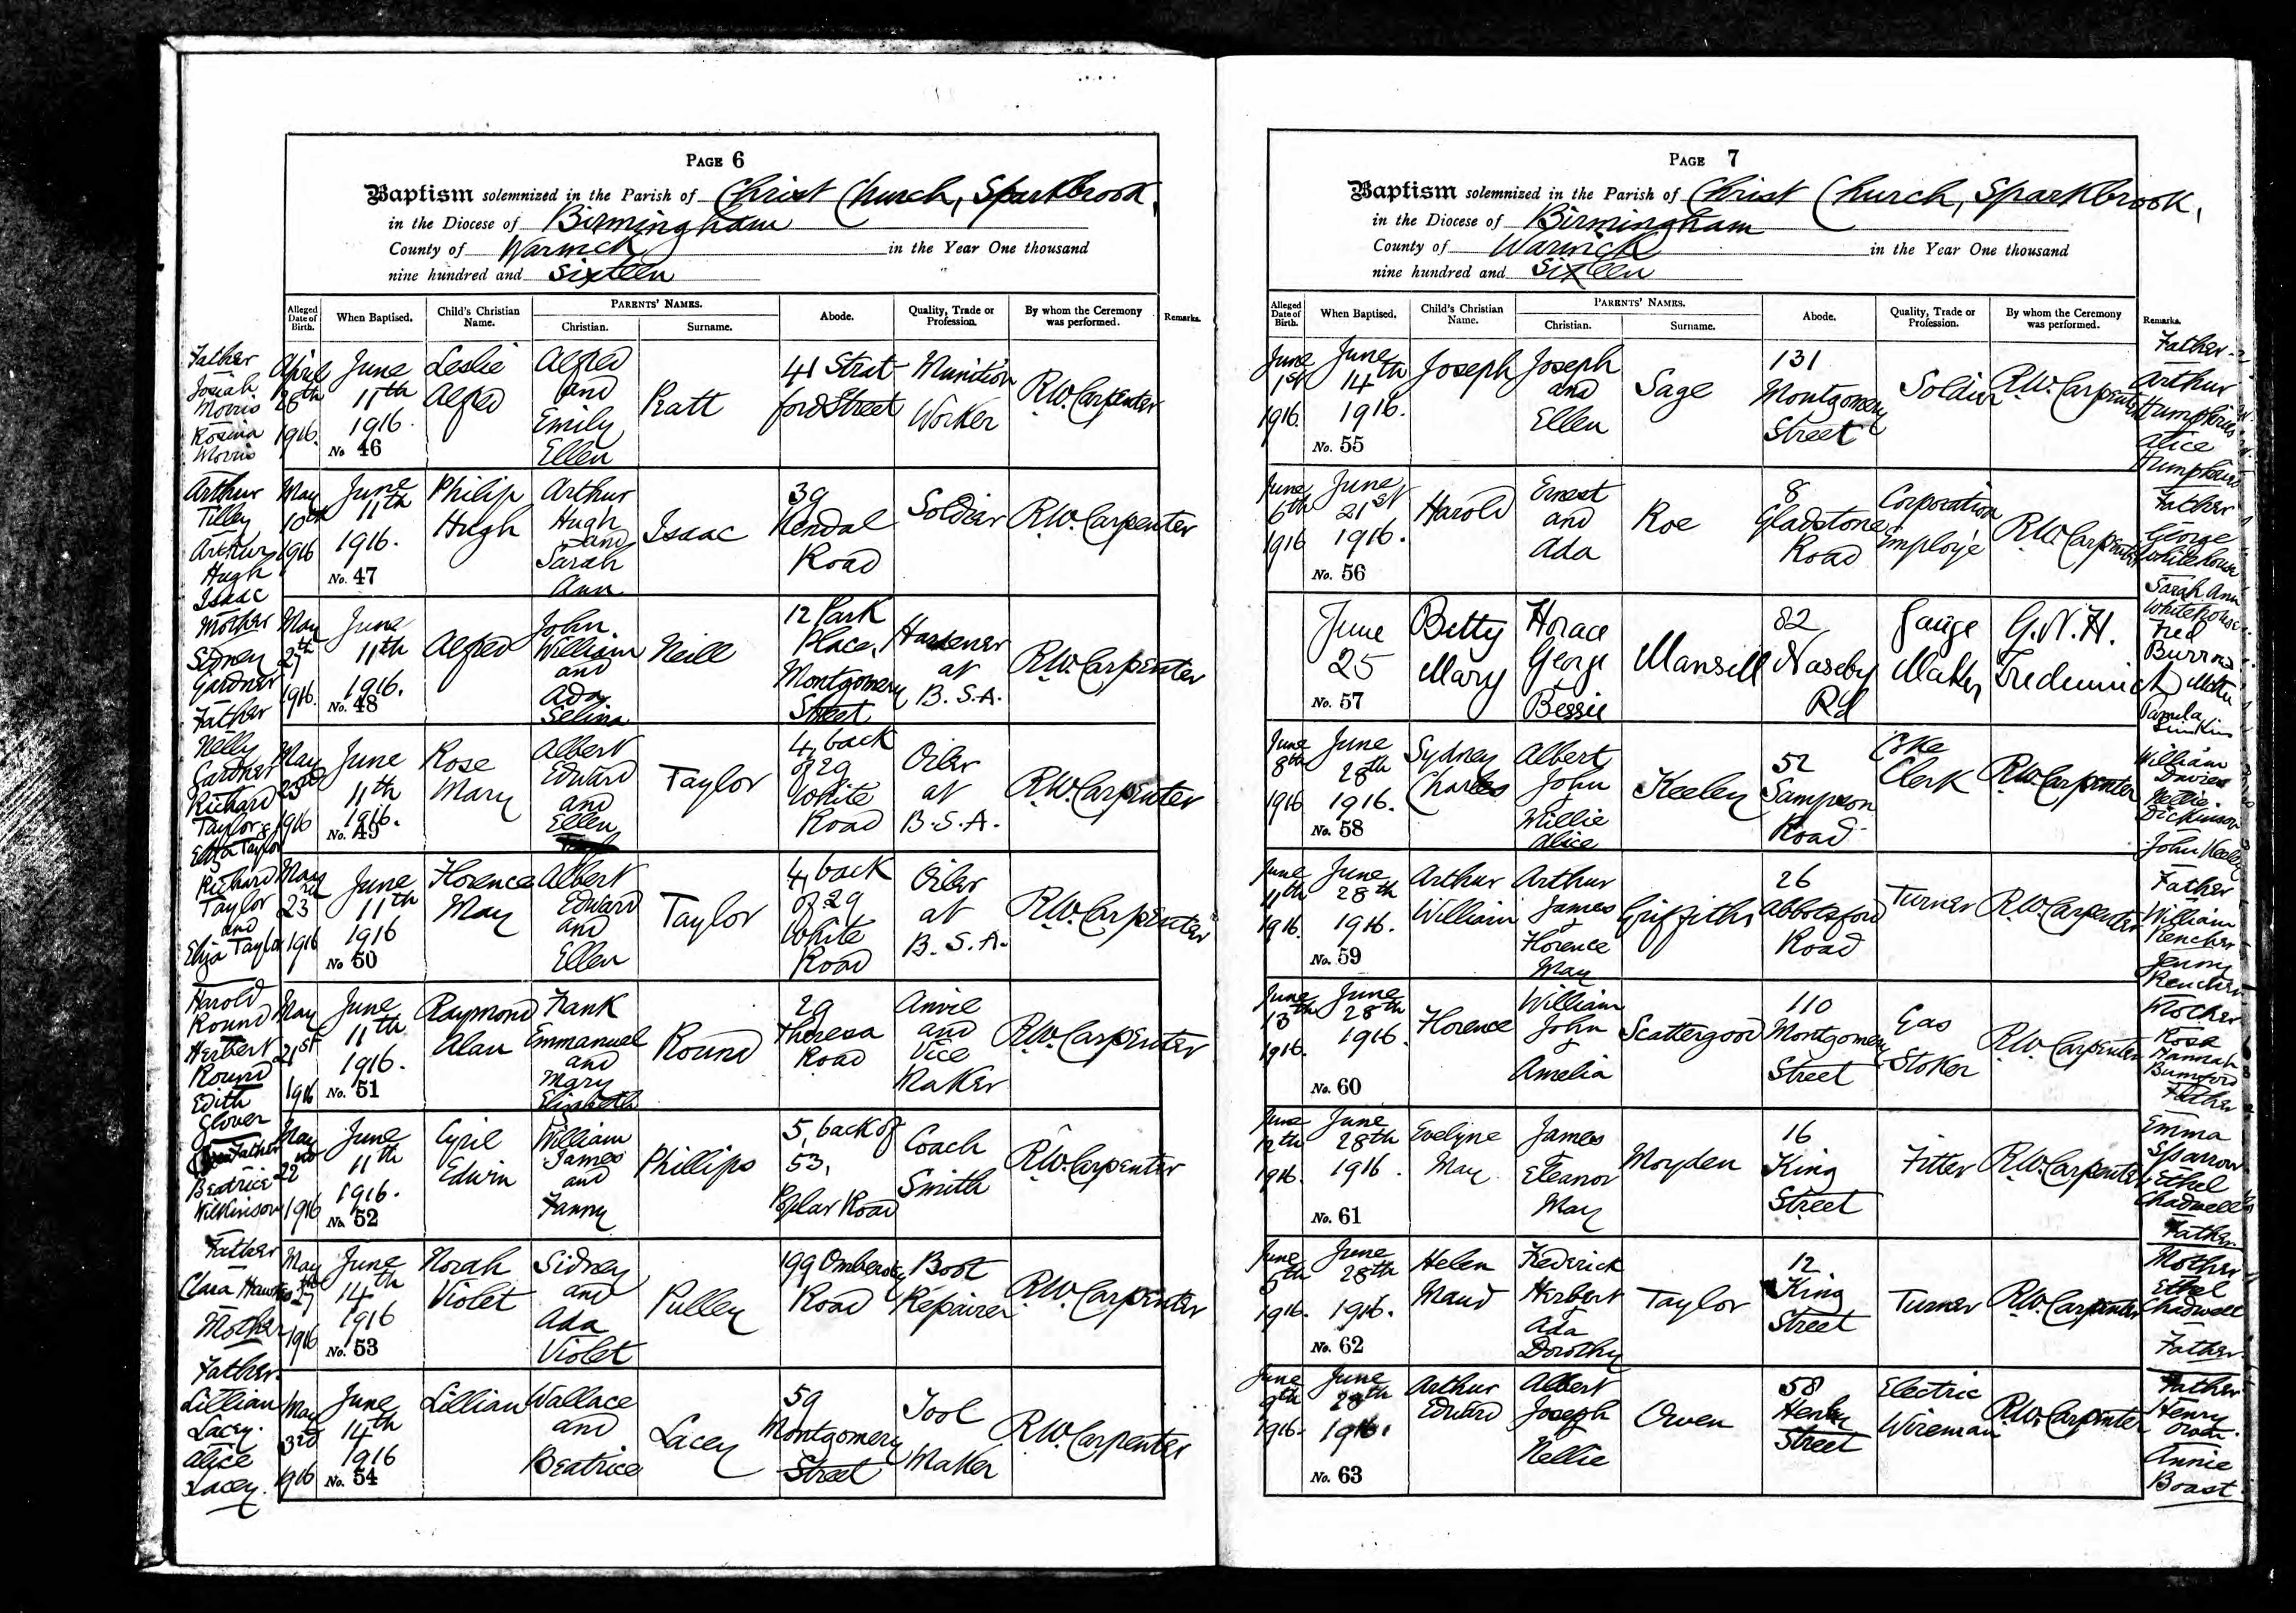 PAGE 6
Baptism solemnized in the Parish of Christ Church, Sparkbrook,
in the Diocese of Birmingham
County of Warwick in the Year One thousand
nine hundred and Sixteen
Alleged Date of Birth. When Baptised. Child's Christian Name. PARENTS' NAMES. Christian. Surname. Abode. Quality, Trade or Profession. By whom the Ceremony was performed. Remarks.
Father Josiah Morris Rosina Morris
April 28th 1916. June 11th 1916. No 46 Leslie Alfred Alfred and Emily Ellen Pratt 41 Stratford Street Munition Worker R.W. Carpenter
Arthur Tilley Arthur Hugh Isaac Mother
May 10th 1916 June 11th 1916. No. 47 Philip Hugh Arthur Hugh and Sarah Ann Isaac 39 Kendal Road Soldier R.W. Carpenter
Sidney Gardner Father Nelly Gardner
May 27th 1916. June 11th 1916. No. 48 Alfred John William and Ada Selina Neill 12 Park Place, Montgomery Street Hardener at B.S.A. R.W. Carpenter
Richard Taylor & Eliza Taylor
May 23rd 1916 June 11th 1916. No. 49 Rose Mary Albert Edward and Ellen Taylor 4, back of 29 White Road Oiler at B.S.A. R.W. Carpenter
Richard Taylor and Eliza Taylor
May 23rd 1916 June 11th 1916 No 50 Florence May Albert Edward and Ellen Taylor 4, back of 29 White Road Oiler at B.S.A. R.W. Carpenter
Harold Round Herbert Round Edith Glover
May 21st 1916 June 11th 1916. No. 51 Raymond Alan Frank Emmanuel and Mary Elizabeth Round 29 Theresa Road Anvil and Vice Maker R.W. Carpenter
Father Beatrice Wilkinson Father
May 22nd 1916 June 11th 1916. No. 52 Cyril Edwin William James and Fanny Phillips 5, back of 53, Poplar Road Coach Smith R.W. Carpenter
Clara Mother Father
May 27th 1916 June 14th 1916 No. 53 Norah Violet Sidney and Ada Violet Pulley 199 Ombersley Road Boot Repairer R.W. Carpenter
Lillian Lacey. Alice Lacey.
May 3rd 1916 June 14th 1916 No. 54 Lillian Wallace and Beatrice Lacey 59 Montgomery Street Tool Maker R.W. Carpenter
PAGE 7
Baptism solemnized in the Parish of Christ Church, Sparkbrook,
in the Diocese of Birmingham
County of Warwick in the Year One thousand
nine hundred and Sixteen
Alleged Date of Birth. When Baptised. Child's Christian Name. PARENTS' NAMES. Christian. Surname. Abode. Quality, Trade or Profession. By whom the Ceremony was performed. Remarks.
June 1st 1916. June 14th 1916. No. 55 Joseph Joseph and Ellen Sage 131 Montgomery Street Soldier R.W. Carpenter Father Arthur Humphries Alice Humphries
June 6th 1916 June 21st 1916. No. 56 Harold Ernest and Ada Roe 8 Gladstone Road Corporation Employé R.W. Carpenter Father George Whitehouse Sarah Ann Whitehouse
June 25 No. 57 Betty Mary Horace George Bessie Mansell 82 Naseby Rd Gauge Maker G.N.H. Frederick Fred Burrows Pamela
June 8th 1916 June 28th 1916. No. 58 Sydney Charles Albert John & Willie Alice Keeley 52 Sampson Road Coke Clerk R.W. Carpenter William Davies Nellie Dickinson John Keeley
June 11th 1916. June 28th 1916. No. 59 Arthur William Arthur James & Florence May Griffiths 26 Abbotsford Road Turner R.W. Carpenter Father William Rencher Jenny Rencher
June 13th 1916. June 28th 1916. No. 60 Florence William John & Amelia Scattergood 110 Montgomery Street Gas Stoker R.W. Carpenter Mother Rose Hannah Bumford Father
June 12th 1916. June 28th 1916. No. 61 Evelyne May James & Eleanor May Moyden 16 King Street Fitter R.W. Carpenter Emma Sparrow Ethel Chadwell Father
June 5th 1916. June 28th 1916. No. 62 Helen Maud Frederick Herbert & Ada Dorothy Taylor 12 King Street Turner R.W. Carpenter Mother Ethel Chadwell Father
June 9th 1916. June 28th 1916. No. 63 Arthur Edward Albert Joseph & Nellie Owen 58 Henley Street Electric Wireman R.W. Carpenter Father Henry Annie Boast